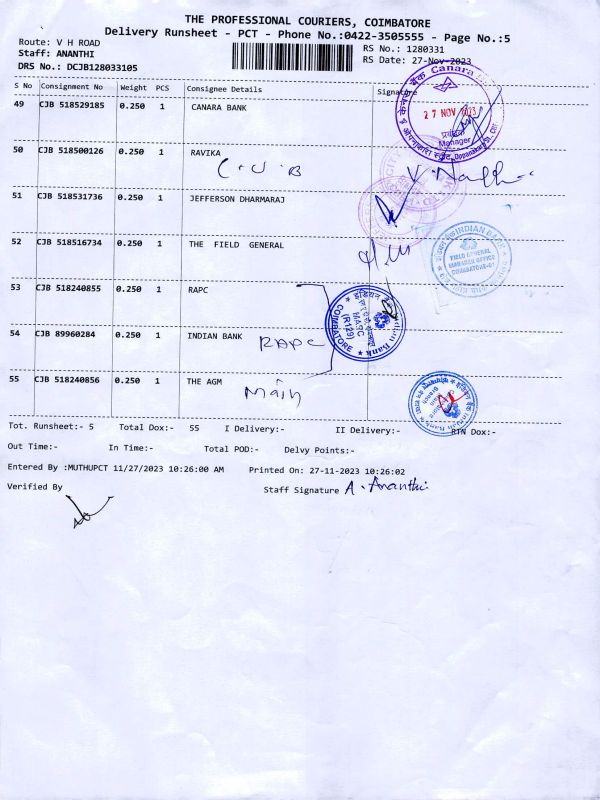 THE PROFESSIONAL COURIERS, COIMBATORE
Delivery Runsheet - PCT - Phone No.:0422-3505555 - Page No.:5
Route: V H ROAD
RS No.: 1280331
Staff: ANANTHI
RS Date: 27-Nov-2023
DRS No.: DCJB128033105
S No Consignment No Weight PCS Consignee Details Signature
49 CJB 518529185 0.250 1 CANARA BANK
27 NOV 2023
Manager
50 CJB 518500126 0.250 1 RAVIKA
C.U.B
51 CJB 518531736 0.250 1 JEFFERSON DHARMARAJ
52 CJB 518516734 0.250 1 THE FIELD GENERAL
INDIAN BANK
FIELD GENERAL
MANAGER OFFICE
COIMBATORE-01
53 CJB 518240855 0.250 1 RAPC
MAPC
(R129)
COIMBATORE
Indian Bank
54 CJB 89960284 0.250 1 INDIAN BANK
RAPC
55 CJB 518240856 0.250 1 THE AGM
Main
Tot. Runsheet:- 5 Total Dox:- 55 I Delivery:- II Delivery:- RTN Dox:-
Out Time:- In Time:- Total POD:- Delvy Points:-
Entered By :MUTHUPCT 11/27/2023 10:26:00 AM Printed On: 27-11-2023 10:26:02
Verified By
Staff Signature A. Ananthi